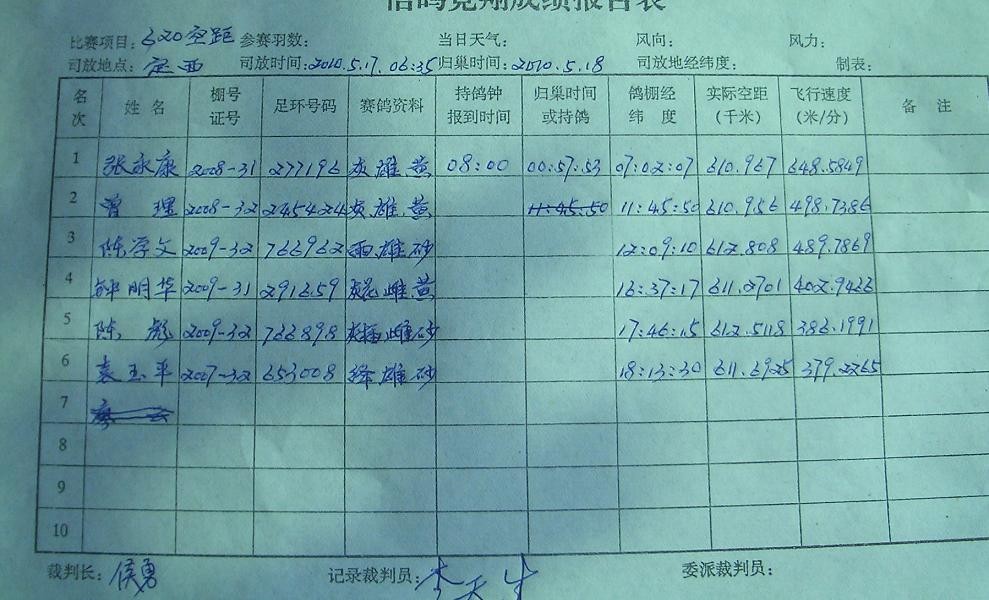 信鸽竞翔成绩报告表
比赛项目: 620空距 参赛羽数: 当日天气: 风向: 风力:
司放地点: 定西 司放时间: 2010.5.17. 06:35 归巢时间: 2010.5.18 司放地经纬度: 制表:
名次 姓名 棚号证号 足环号码 赛鸽资料 持鸽钟报到时间 归巢时间或持鸽 鸽棚经纬度 实际空距(千米) 飞行速度(米/分) 备注
1 张永康 2008-31 277196 灰雄黄 08:00 00:57:53 07:02:07 610.967 648.5849
2 曾理 2008-32 245424 灰雄黄 11:45:50 11:45:50 610.956 498.7386
3 陈学文 2009-32 766962 雨雄砂 12:09:10 612.808 489.7869
4 明华 2009-31 291659 雌黄 16:37:17 611.2701 402.9426
5 陈彪 2009-32 766898 雌砂 17:46:15 612.5118 386.1991
6 袁玉平 2007-32 653008 绛雄砂 18:13:30 611.6925 379.2265
7
8
9
10
裁判长: 侯勇 记录裁判员: 李天生 委派裁判员: